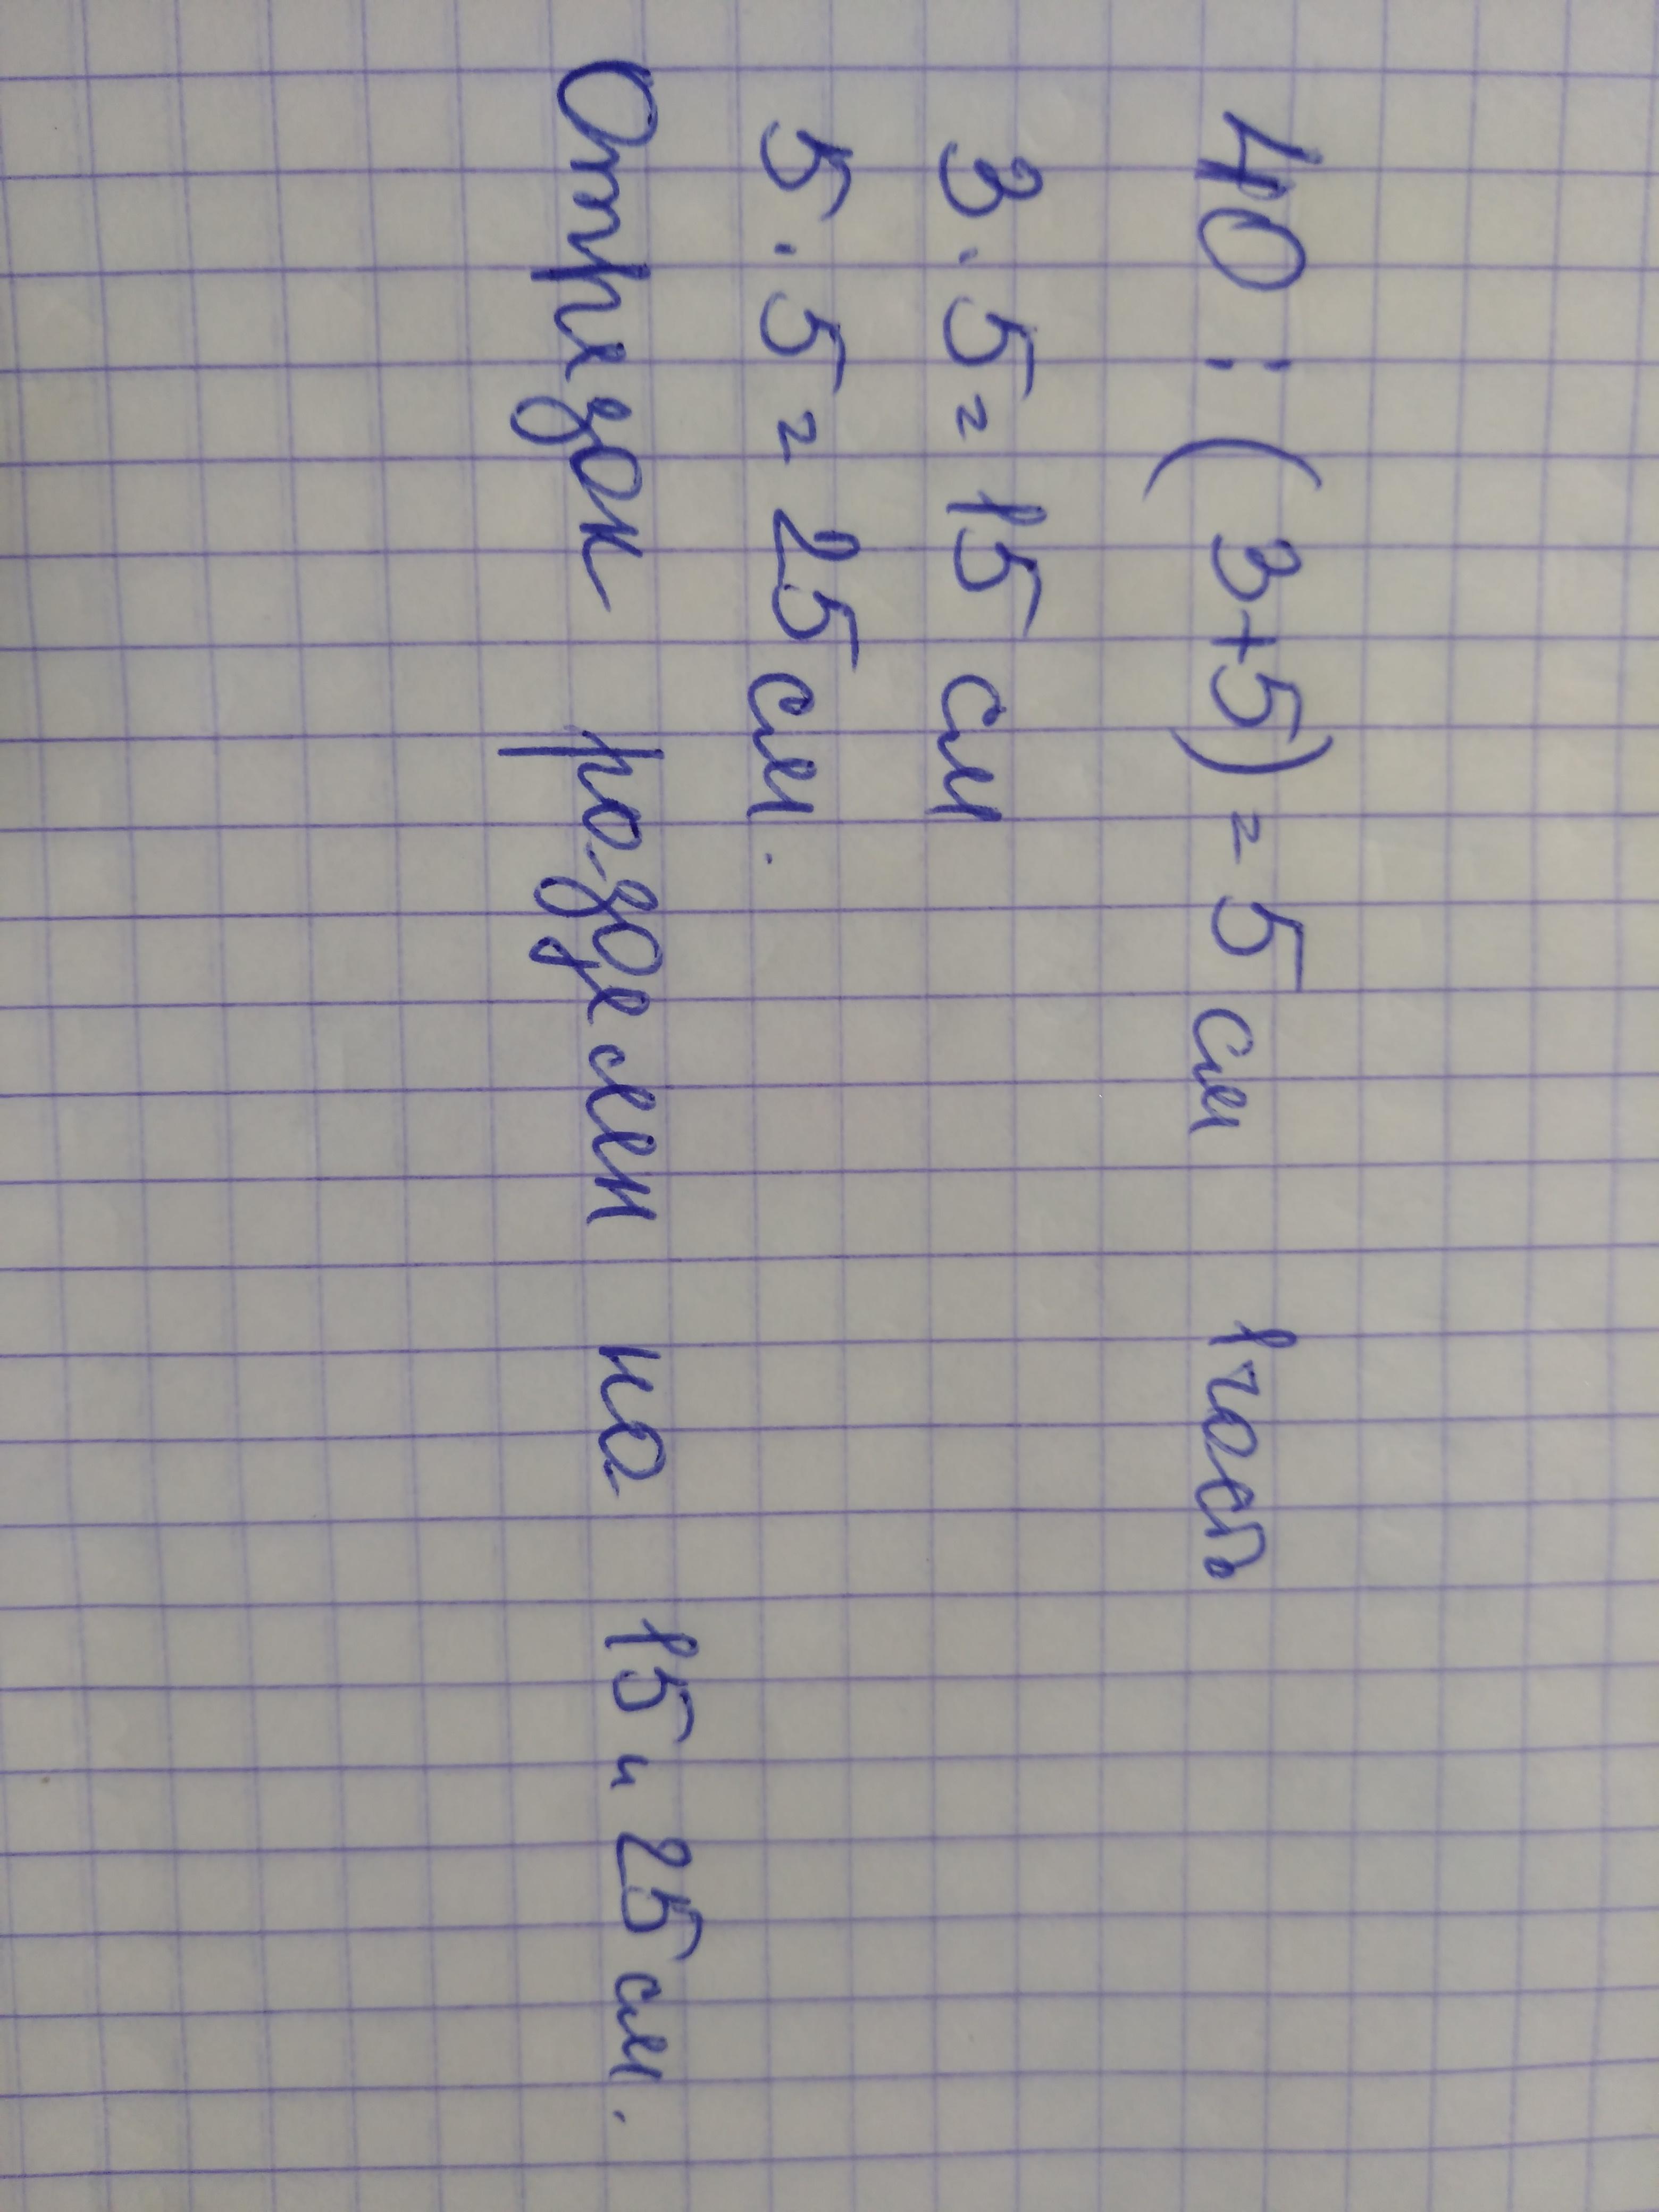 40 : (3+5) = 5 см 1 часть
3 · 5 = 15 см
5 · 5 = 25 см.
Отрезок разделен на 15 и 25 см.